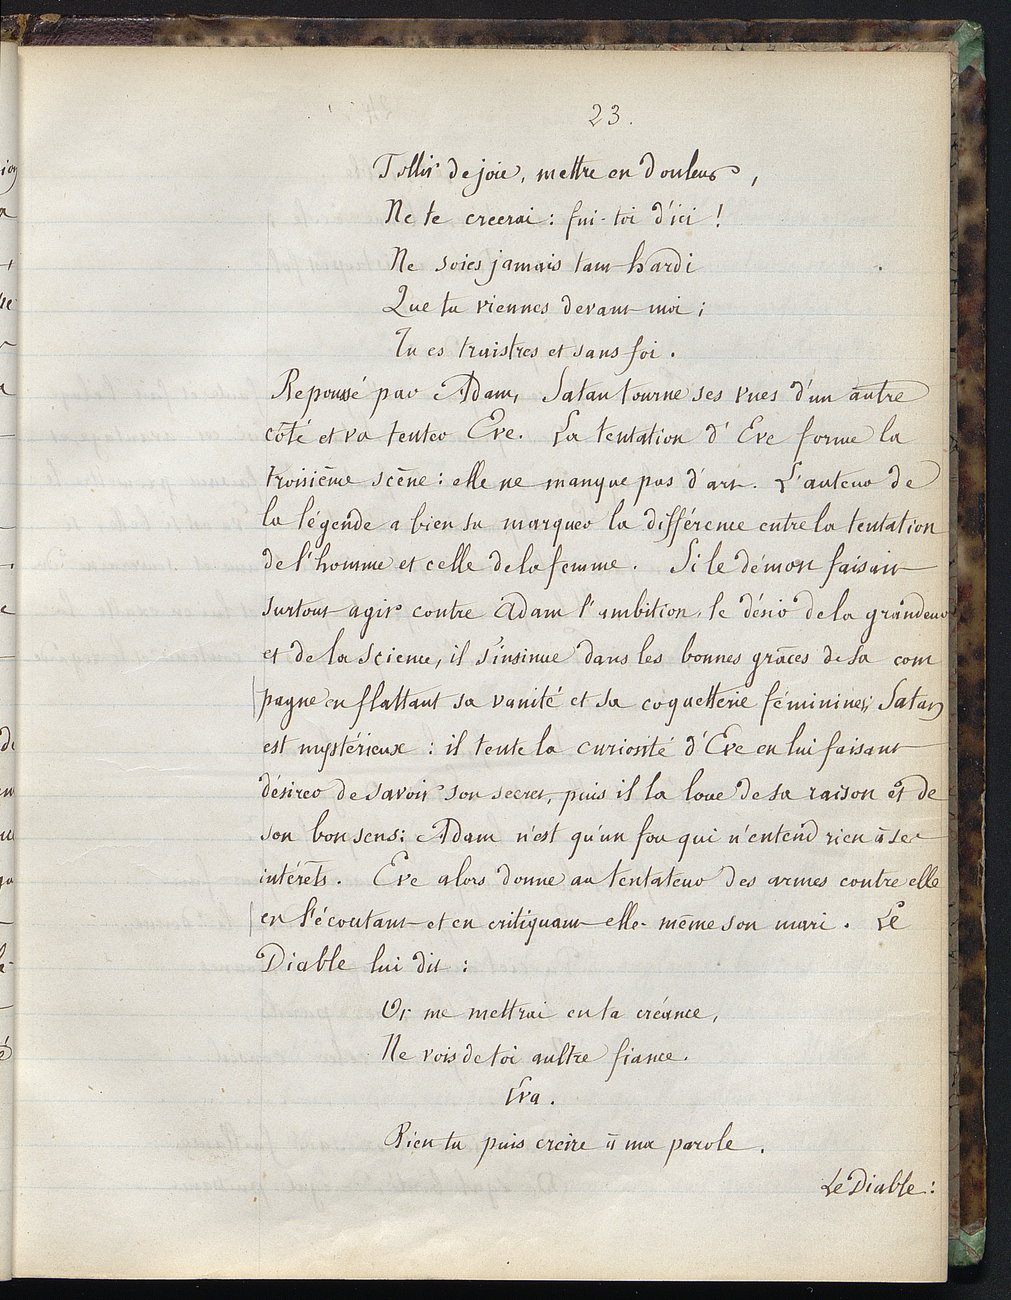 23.
Tollir de joie, mettre en douleur,
Ne te creerai : fui-toi d'ici !
Ne soies jamais tam hardi
Que tu viennes devant moi ;
Tu es traistres et sans foi.
Repoussé par Adam, Satan tourne ses vues d'un autre
côté et va tenter Eve. La tentation d'Eve forme la
troisième scène : elle ne manque pas d'art. L'auteur de
la légende a bien su marquer la différence entre la tentation
de l'homme et celle de la femme. Si le démon faisait
surtout agir contre Adam l'ambition, le désir de la grandeur
et de la science, il s'insinue dans les bonnes grâces de sa com
pagne en flattant sa vanité et sa coquetterie féminines; Satan
est mystérieux : il tente la curiosité d'Eve en lui faisant
désirer de savoir son secret, puis il la loue de sa raison et de
son bon sens : Adam n'est qu'un fou qui n'entend rien à ses
intérêts. Eve alors donne au tentateur des armes contre elle
en l'écoutant et en critiquant elle-même son mari. Le
Diable lui dit :
Or me mettrai en ta créance,
Ne vois de toi aultre fiance.
Eva.
Bien tu puis creire à ma parole.
Le Diable :